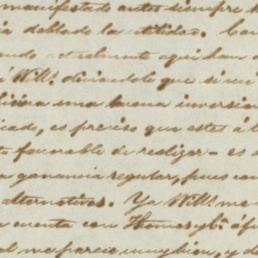 manifestado antes siempre
doblado la utilidad.
realmente aqui han
á Will. diciendole que si
una buena inversion
es preciso que estes á
favorable de realizar - es
ganancia regular, pues con
alternativas. Ya Will. me
cuenta con
me parece muy bien, y